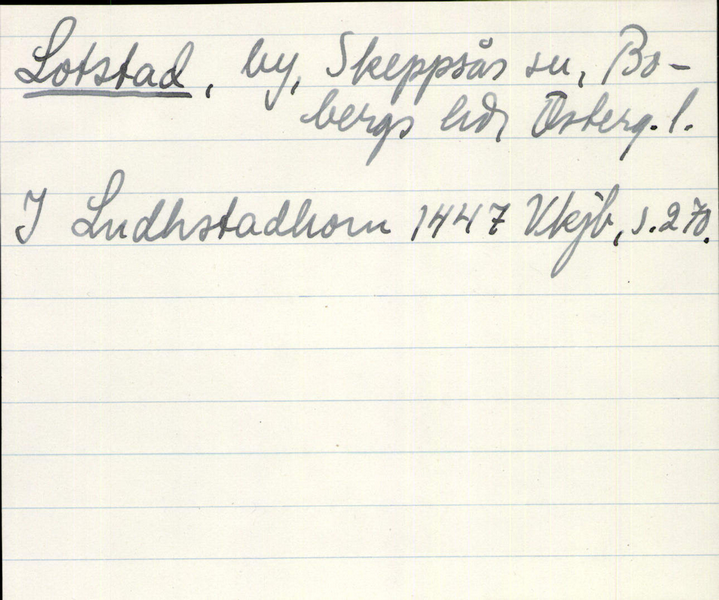 Lotstad, by, Skeppsås sn, Bo-
bergs hd, Österg. l.
J Ludhstadhom 1447 Vkjb, s. 270.